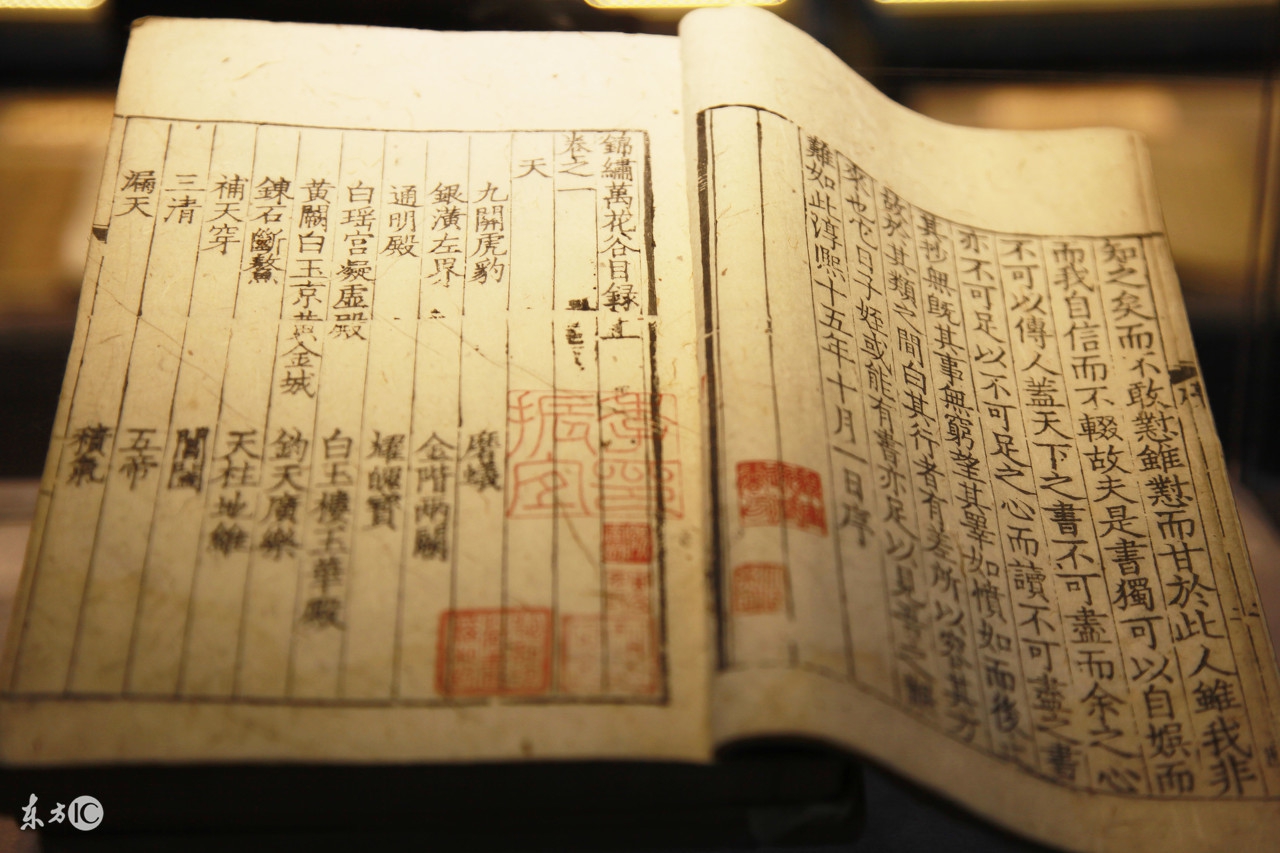 知之矣而不敢懟雖懟而甘於此人雖我非
而我自信而不輟故夫是書獨可以自娯而
不可以傳人蓋天下之書不可盡而余之心
亦不可足以不可足之心而讀不可盡之書
其抄無旣其事無窮望其睪如憤如而後
於其類之間白其行者有差所以窮其方
來也它日子姪或能有書亦足以見吾之
難如此淳熙十五年十月一日序
錦繡萬花谷目録
卷之一
天
九關虎豹 磨蟻
銀潢左界 金階兩闕
通明殿 耀魄寶
白瑶宫凝虚殿 白玉樓玉華殿
黃闕白玉京黃金城 鈞天廣樂
鍊石斷鰲 天柱地維
補天穿 閶闔
三清 五帝
漏天 積氣
东方IC